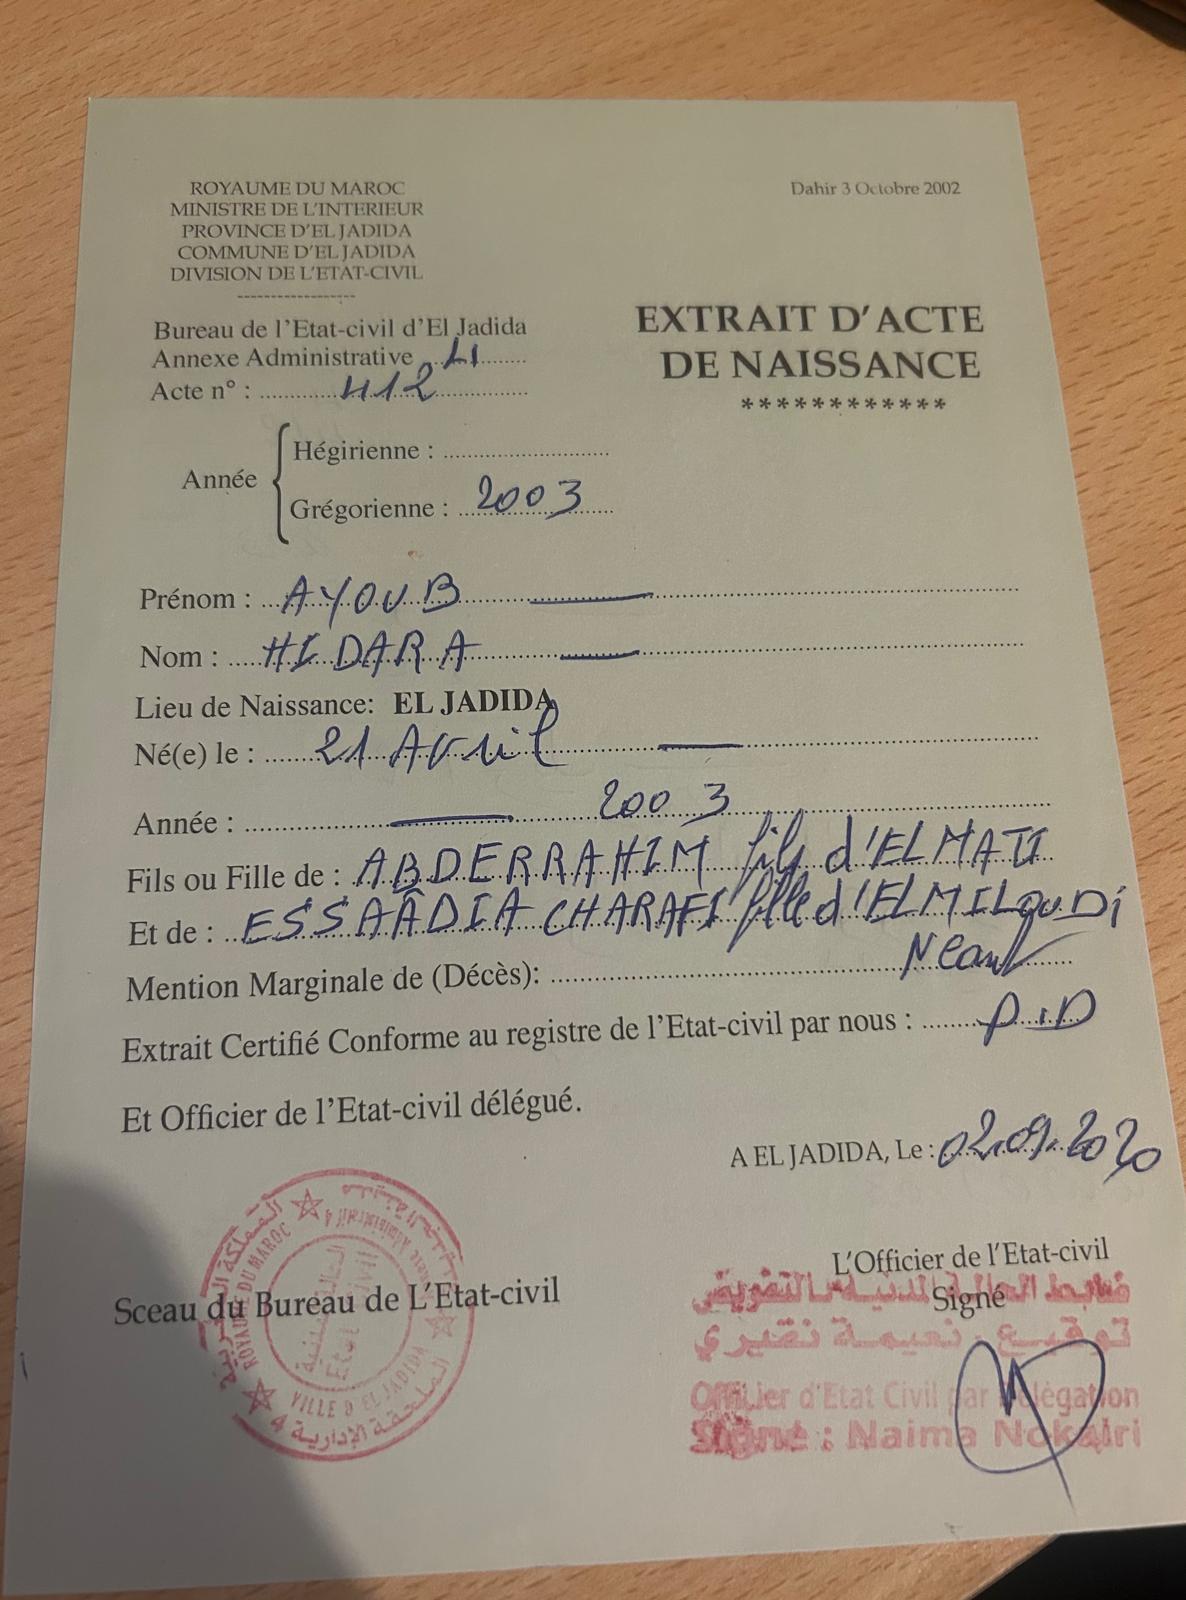 ROYAUME DU MAROC
MINISTRE DE L'INTERIEUR
PROVINCE D'EL JADIDA
COMMUNE D'EL JADIDA
DIVISION DE L'ETAT-CIVIL
Dahir 3 Octobre 2002
Bureau de l'Etat-civil d'El Jadida
Annexe Administrative
Acte n° : 412
EXTRAIT D'ACTE
DE NAISSANCE
************
Année
Hégirienne :
Grégorienne : 2003
Prénom : AYOUB
Nom : HIDARA
Lieu de Naissance: EL JADIDA
Né(e) le : 21 Avril
Année : 2003
Fils ou Fille de : ABDERRAHIM fils d'ELMATI
Et de : ESSAÂDIA CHARAFI fille d'ELMILOUDI
Mention Marginale de (Décès): Néant
Extrait Certifié Conforme au registre de l'Etat-civil par nous : P.D
Et Officier de l'Etat-civil délégué.
A EL JADIDA, Le : 02.09.2020
Sceau du Bureau de L'Etat-civil
المملكة المغربية
ROYAUME DU MAROC
Etat Civil
VILLE D'EL JADIDA
الملحقة الإدارية 4
L'Officier de l'Etat-civil
Signé
ضابط الحالة المدنية بالتفويض
توقيع : نعيمة نقيري
Officier d'Etat Civil par délégation
Signé : Naima Nokairi